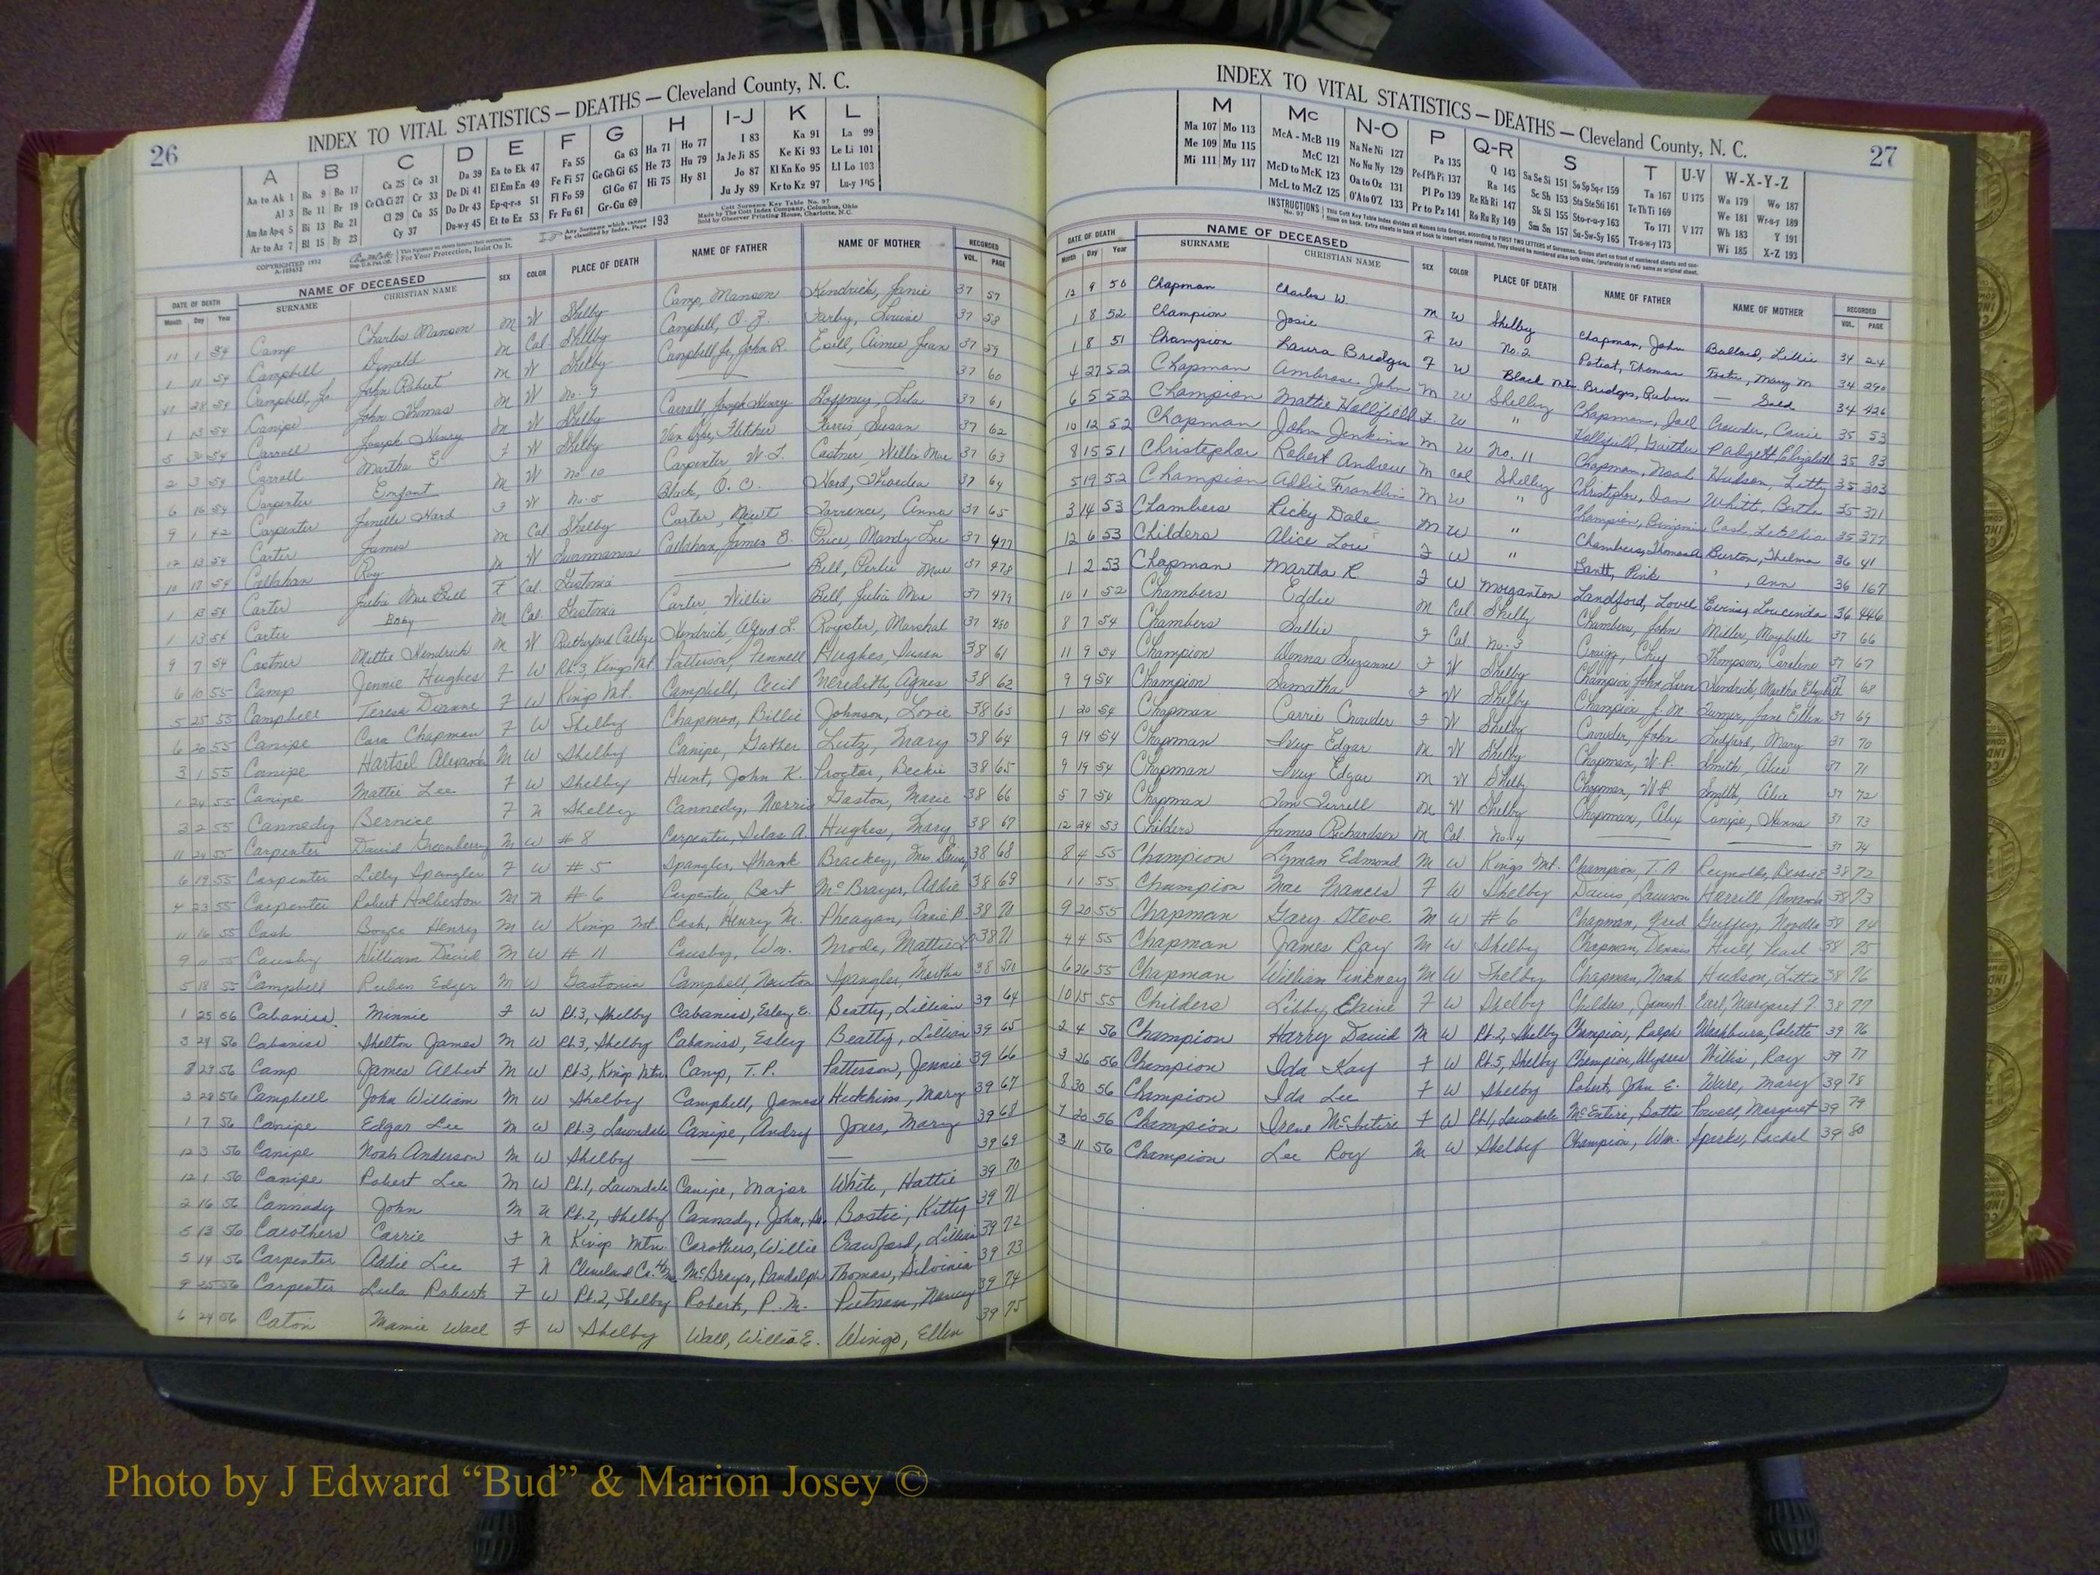 26
INDEX TO VITAL STATISTICS — DEATHS — Cleveland County, N. C.
A B C D E F G H I-J K L
Aa to Ak 1 Ba 9 Bo 17 Ca 25 Co 31 Da 39 Ea to Ek 47 Fa 55 Ga 63 Ha 71 Ho 77 I 83 Ka 91 La 99
Al 3 Be 11 Br 19 Ce Ch Ci 27 Cr 33 De Di 41 El Em En 49 Fe Fi 57 Ge Gh Gi 65 He 73 Hu 79 Ja Je Ji 85 Ke Ki 93 Le Li 101
Am An Ap-q 5 Bi 13 Bu 21 Cl 29 Cu 35 Do Dr 43 Ep-q-r-s 51 Fl Fo 59 Gl Go 67 Hi 75 Hy 81 Jo 87 Kl Kn Ko 95 Ll Lo 103
Ar to Az 7 Bl 15 By 23 Cy 37 Du-w-y 45 Et to Ez 53 Fr Fu 61 Gr-Gu 69 Ju Jy 89 Kr to Kz 97 Lu-y 105
COPYRIGHTED 1932
For Your Protection, Insist On It.
Any Surname which cannot be classified by Index, Page 193
Cott Surname Key Table No. 97
Made by The Cott Index Company, Columbus, Ohio
Sold by Observer Printing House, Charlotte, N. C.
DATE OF DEATH NAME OF DECEASED SEX COLOR PLACE OF DEATH NAME OF FATHER NAME OF MOTHER RECORDED
Month Day Year SURNAME CHRISTIAN NAME VOL. PAGE
11 1 54 Camp Charles Manson M W Shelby Camp, Manson Kendrick, Janie 37 57
1 11 54 Campbell Donald M Cal Shelby Campbell, O. Z. Farby, Louise 37 58
11 28 54 Campbell, Jr. John Robert M W Shelby Campbell Jr, John R. Esell, Aimee Jean 37 59
1 13 54 Canipe John Thomas M W No. 9 — — 37 60
5 30 54 Carroll Joseph Henry M W Shelby Carroll, Joseph Henry Gaffney, Lila 37 61
2 3 54 Carroll Martha E. F W Shelby Van Dyke, Fletcher Ferris, Susan 37 62
6 16 54 Carpenter Enfant M W No 10 Carpenter, W. F. Costner, Willie Mae 37 63
9 1 42 Carpenter Jenelle Hord F W No. 5 Black, O. O. Hord, Theodia 37 64
12 13 54 Carter James M Cal Shelby Carter, Newt Torrence, Anna 37 65
10 17 54 Callahan Roy M W Callahan, James B. Price, Mandy Lee 37 477
1 13 54 Carter Julia Mae Bell F Cal. Gastonia — Bell, Perlie Mae 37 478
1 13 54 Carter Baby M Cal Gastonia Carter, Willie Bell, Julia Mae 37 479
9 7 54 Costner Mittie Hendrick M W Rutherford College Hendrick, Alfred L. Royster, Marshal 37 480
6 10 55 Camp Jennie Hughes F W Rt. 3, Kings Mt Patterson, Fennell Hughes, Susan 38 61
5 25 55 Campbell Teresa Dianne F W Kings Mt. Campbell, Cecil Meredith, Agnes 38 62
6 20 55 Canipe Cora Chapman F W Shelby Chapman, Billie Johnson, Lovie 38 63
3 1 55 Canipe Hartsel Alexander M W Shelby Canipe, Gather Lutz, Mary 38 64
1 24 55 Canipe Mattie Lee F W Shelby Hunt, John K. Proctor, Beckie 38 65
3 2 55 Cannedy Bernice F N Shelby Cannedy, Norris Gaston, Marie 38 66
11 24 55 Carpenter David Greenberry M W # 8 Carpenter, Silas A. Hughes, Mary 38 67
6 19 55 Carpenter Lilly Spangler F W # 5 Spangler, Shank Brackey, Mrs. 38 68
4 23 55 Carpenter Robert Holberton M N # 6 Carpenter, Bert McBrayer, Addie 38 69
11 16 55 Cash Boyce Henry M W Kings Mt Cash, Henry M. Pheagan, Annie B 38 70
9 11 55 Causby William David M W # 11 Causby, Wm. Mode, Mattie L 38 71
5 18 55 Campbell Ruben Edgar M W Gastonia Campbell, Newton Spangler, Martha 38 511
1 25 56 Cabaniss Minnie F W Rt. 3, Shelby Cabaniss, Esley E. Beatty, Lillian 39 64
3 24 56 Cabaniss Shelton James M W Rt. 3, Shelby Cabaniss, Esley Beatty, Lillian 39 65
8 29 56 Camp James Albert M W Rt. 3, Kings Mtn Camp, T. P. Patterson, Jennie 39 66
3 28 56 Campbell John William M W Shelby Campbell, James Hutchins, Mary 39 67
1 7 56 Canipe Edgar Lee M W Rt. 3, Lawndale Canipe, Andry Jones, Mary 39 68
12 3 56 Canipe Noah Anderson M W Shelby — — 39 69
12 1 56 Canipe Robert Lee M W Rt. 1, Lawndale Canipe, Major White, Hattie 39 70
2 16 56 Cannady John M N Rt. 2, Shelby Cannady, John, Sr. Bostic, Kitty 39 71
5 13 56 Carothers Carrie F N Kings Mtn Carothers, Willie Crawford, Lillian 39 72
5 14 56 Carpenter Addie Lee F N Cleveland Co. Home McBrayer, Randolph Thomas, Silvinia 39 73
9 25 56 Carpenter Lula Roberts F W Rt. 2, Shelby Roberts, P. M. Putnam, Nancy 39 74
6 24 56 Caton Mamie Wall F W Shelby Wall, Willie E. Wingo, Ellen 39 75
27
INDEX TO VITAL STATISTICS — DEATHS — Cleveland County, N. C.
M Mc N-O P Q-R S T U-V W-X-Y-Z
Ma 107 Mo 113 McA - McB 119 Na Ne Ni 127 Pa 135 Q 143 Sa Se Si 151 So Sp Sq-r 159 Ta 167 U 175 Wa 179 Wo 187
Me 109 Mu 115 McC 121 No Nu Ny 129 Pe-f Ph Pi 137 Ra 145 Sc Sh 153 Sta Ste Sti 161 Te Th Ti 169 We 181 Wr-u-y 189
Mi 111 My 117 McD to McK 123 Oa to Oz 131 Pl Po 139 Re Rh Ri 147 Sk Sl 155 Sto-r-u-y 163 To 171 V 177 Wh 183 Y 191
McL to McZ 125 O'A to O'Z 133 Pr to Pz 141 Ro Ru Ry 149 Sm Sn 157 Su-Sw-Sy 165 Tr-u-w-y 173 Wi 185 X-Z 193
INSTRUCTIONS No. 97 This Cott Key Table Index divides all Names into Groups, according to FIRST TWO LETTERS of Surnames. Groups start on front of numbered sheets and continue on back. Extra sheets in back of book to insert where required. They should be numbered alike both sides, (preferably in red) same as original sheet.
DATE OF DEATH NAME OF DECEASED SEX COLOR PLACE OF DEATH NAME OF FATHER NAME OF MOTHER RECORDED
Month Day Year SURNAME CHRISTIAN NAME VOL. PAGE
12 9 50 Chapman Charles W. M W Shelby Chapman, John Ballard, Lillie 34 24
1 8 52 Champion Josie F W No. 2 Poteat, Thomas Foster, Mary M. 34 290
1 8 51 Champion Laura Bridges F W Black Mtn. Bridges, Ruben — Gold 34 426
4 27 52 Chapman Ambrose John M W Shelby Chapman, Joel Crowder, Carrie 35 53
6 5 52 Champion Mattie Hollifield F. W " Hollifield, Guither Padgett, Elizabeth 35 83
10 12 52 Chapman John Jenkins M W No. 11 Chapman, Noah Hudson, Letty 35 303
8 15 51 Christopher Robert Andrew M Cal Shelby Christopher, Dan Whitt, Bertha 35 371
5 19 52 Champion Addie Franklin M W " Champion, Benjamin Cash, Letallia 35 377
3 14 53 Chambers Ricky Dale M W " Chambers, Thomas A Burton, Thelma 36 41
12 6 53 Childers Alice Lou F W " Gantt, Pink " , Ann 36 167
1 2 53 Chapman Martha R. F W Morganton Landford, Lovel Ewing, Loucinda 36 446
10 1 52 Chambers Eddie M Cal Shelby Chambers, John Miller, Maybelle 37 66
8 7 54 Chambers Sallie F Cal No. 3 Craig, Chey Thompson, Caroline 37 67
11 9 54 Champion Donna Suzanne F W Shelby Champion, John Loren Hendrick, Martha Elizabeth 37 68
9 9 54 Champion Samatha F W Shelby Champion, J. M. Turner, Jane Ellen 37 69
1 20 54 Chapman Carrie Crowder F W Shelby Crowder, John Ledford, Mary 37 70
9 19 54 Chapman Ivey Edgar M W Shelby Chapman, W. P. Smith, Alice 37 71
9 19 54 Chapman Ivey Edgar M W Shelby Chapman, W. P. Smith, Alice 37 72
5 7 54 Chapman Tom Terrell M W Shelby Chapman, Alex Canipe, Hanna 37 73
12 24 53 Childers James Richardson M Cal No. 4 — — 37 74
8 4 55 Champion Lyman Edmond M W Kings Mt. Champion, T. A Reynolds, Bessie E 38 72
1 1 55 Champion Mae Frances F W Shelby Davis, Lawson Harrill, Amanda 38 73
9 20 55 Chapman Gary Steve M W # 6 Chapman, Fred Guffey, Novella 38 74
4 4 55 Chapman James Ray M W Shelby Chapman, Dennis Hull, Pearl 38 75
6 26 55 Chapman William Pinkney M W Shelby Chapman, Noah Hudson, Lettie 38 76
10 15 55 Childers Libby Elaine F W Shelby Childers, James A Earl, Margaret T. 38 77
2 4 56 Champion Harry David M W Rt. 2, Shelby Champion, Ralph Washburn, Colette 39 76
3 26 56 Champion Ida Kay F W Rt. 5, Shelby Champion, Ulysses Willis, Ray 39 77
8 30 56 Champion Ida Lee F W Shelby Robert, John E. Ware, Mary 39 78
7 20 56 Champion Irene McIntire F W Rt. 1, Lawndale McEntire, Botts Powell, Margaret 39 79
3 11 56 Champion Lee Roy M W Shelby Champion, Wm. Sparks, Rachel 39 80
Photo by J Edward “Bud” & Marion Josey ©